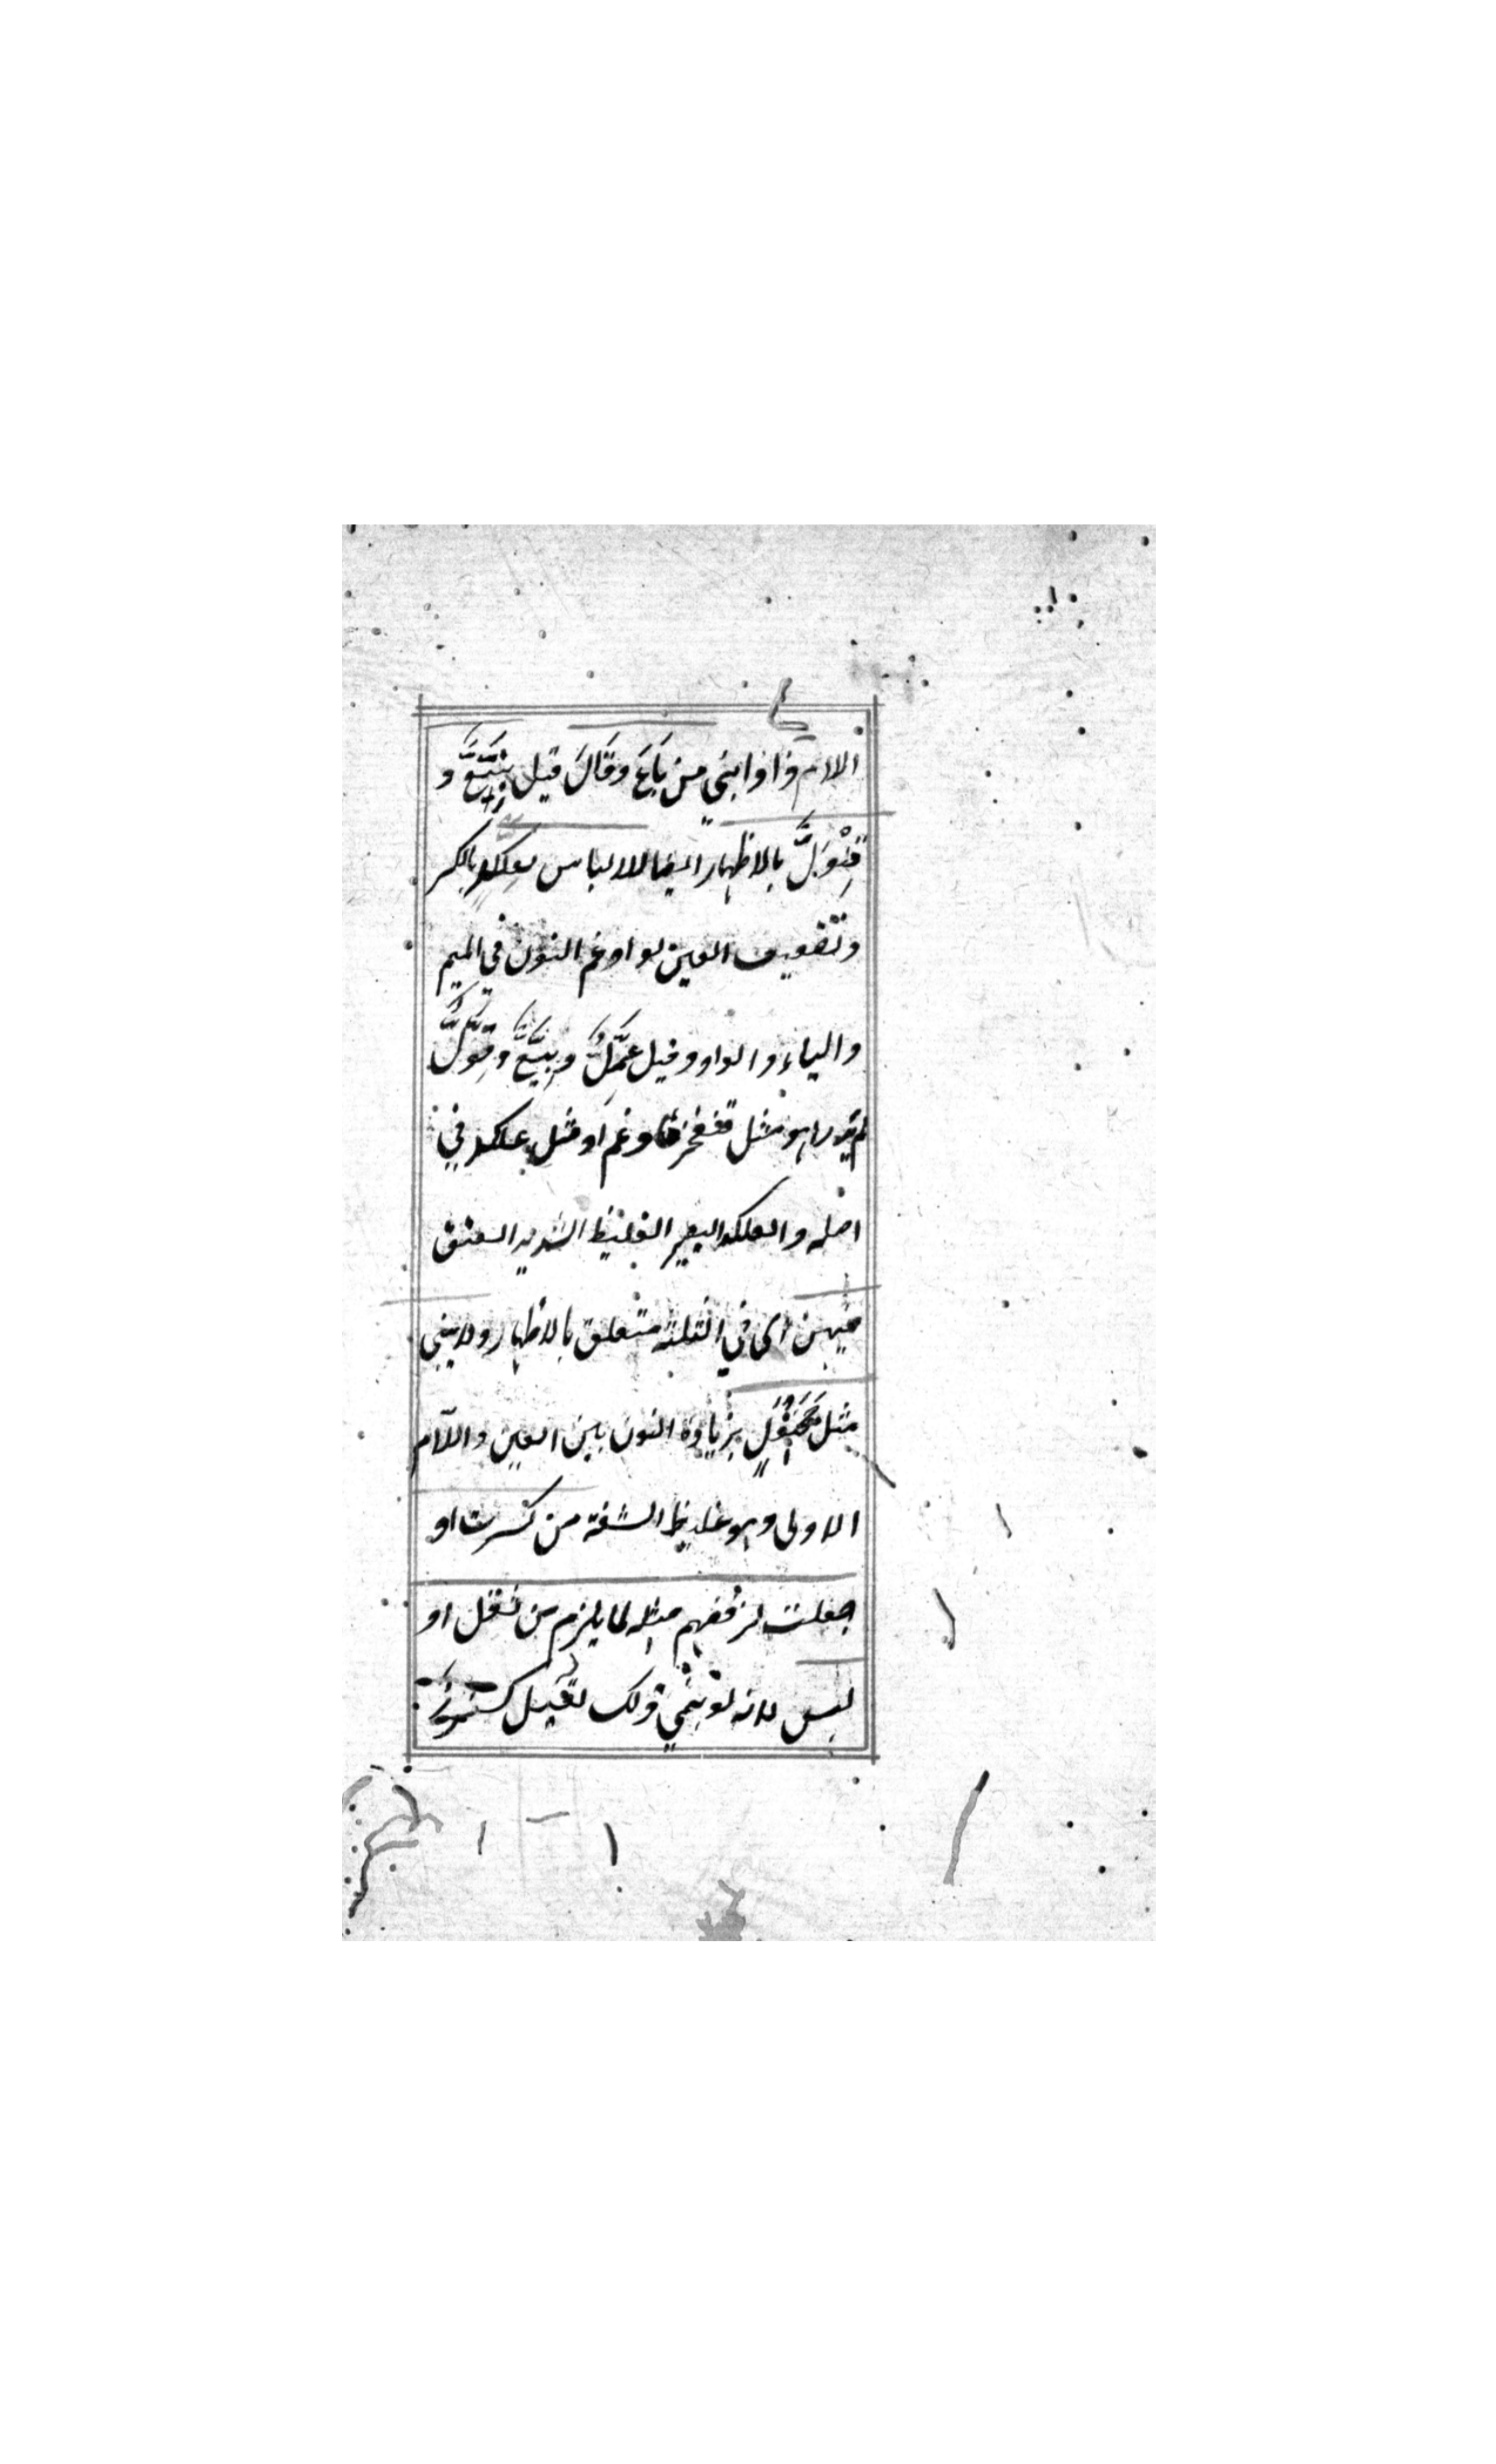 اللام واذا بني من بَاعَ وقَالَ قيل بِنْيَعٌّ و
قِنْوَلٌّ بالاظهار ايضا للالباس بعلكد بالكسر
وتضعيف العين لو ادغم النون في الميم
والياء والواو وقيل عِمَّلٌّ وبِيَّعٌّ وقِوَّلٌّ
لم يدر اهو مثل قنفخر فادغم او مثل علكد في
اصله والعلكد البعير الغليظ الشديد العنق
فيهن اى في الثلثة متعلق بالاظهار ولا يبنى
مثل جَحَنْفَلٍ بزيادة النون بين العين واللام
الاولى وهو غليظ الشفة من كسرت او
جعلت لرفضهم مثله لما يلزم من ثقل او
لبس لانه لو بني قولك لقيل كسنرر